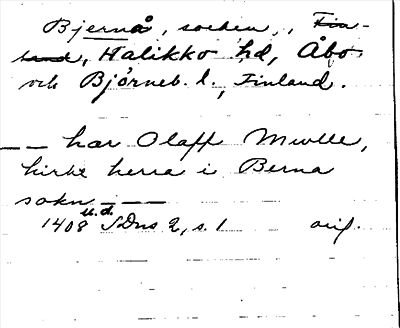 Bjernå, socken, Fin-
land, Halikko hd, Åbo
och Björneb. l., Finland.
— — har Olaff Mwlle,
kirke herra i Berna
sokn — — —
u.d.
1408 SDns 2, s. 1 orig.